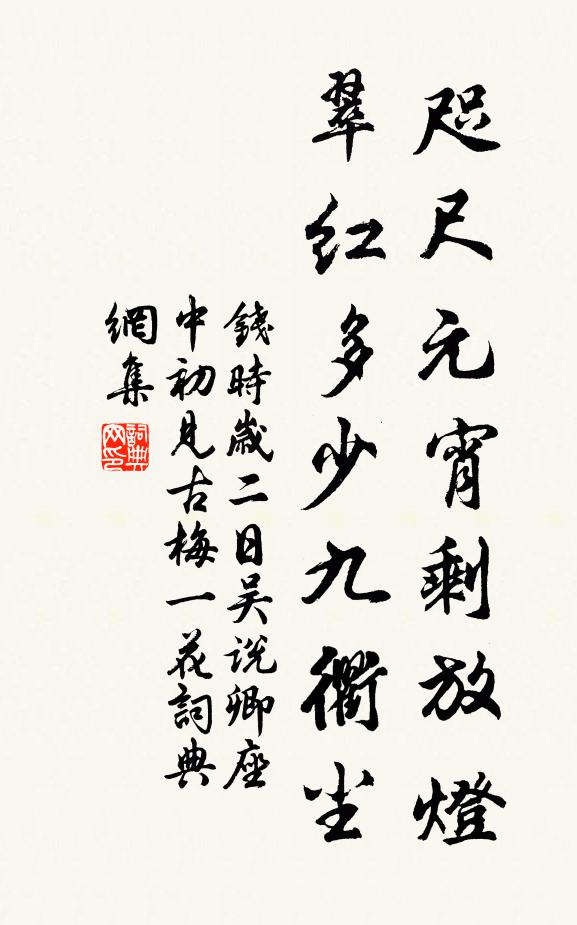 咫尺元宵剩放燈
翠紅多少九衢尘
錢時歲二日吴説卿座
中初見古梅一花詞典
網集
詞典
网印